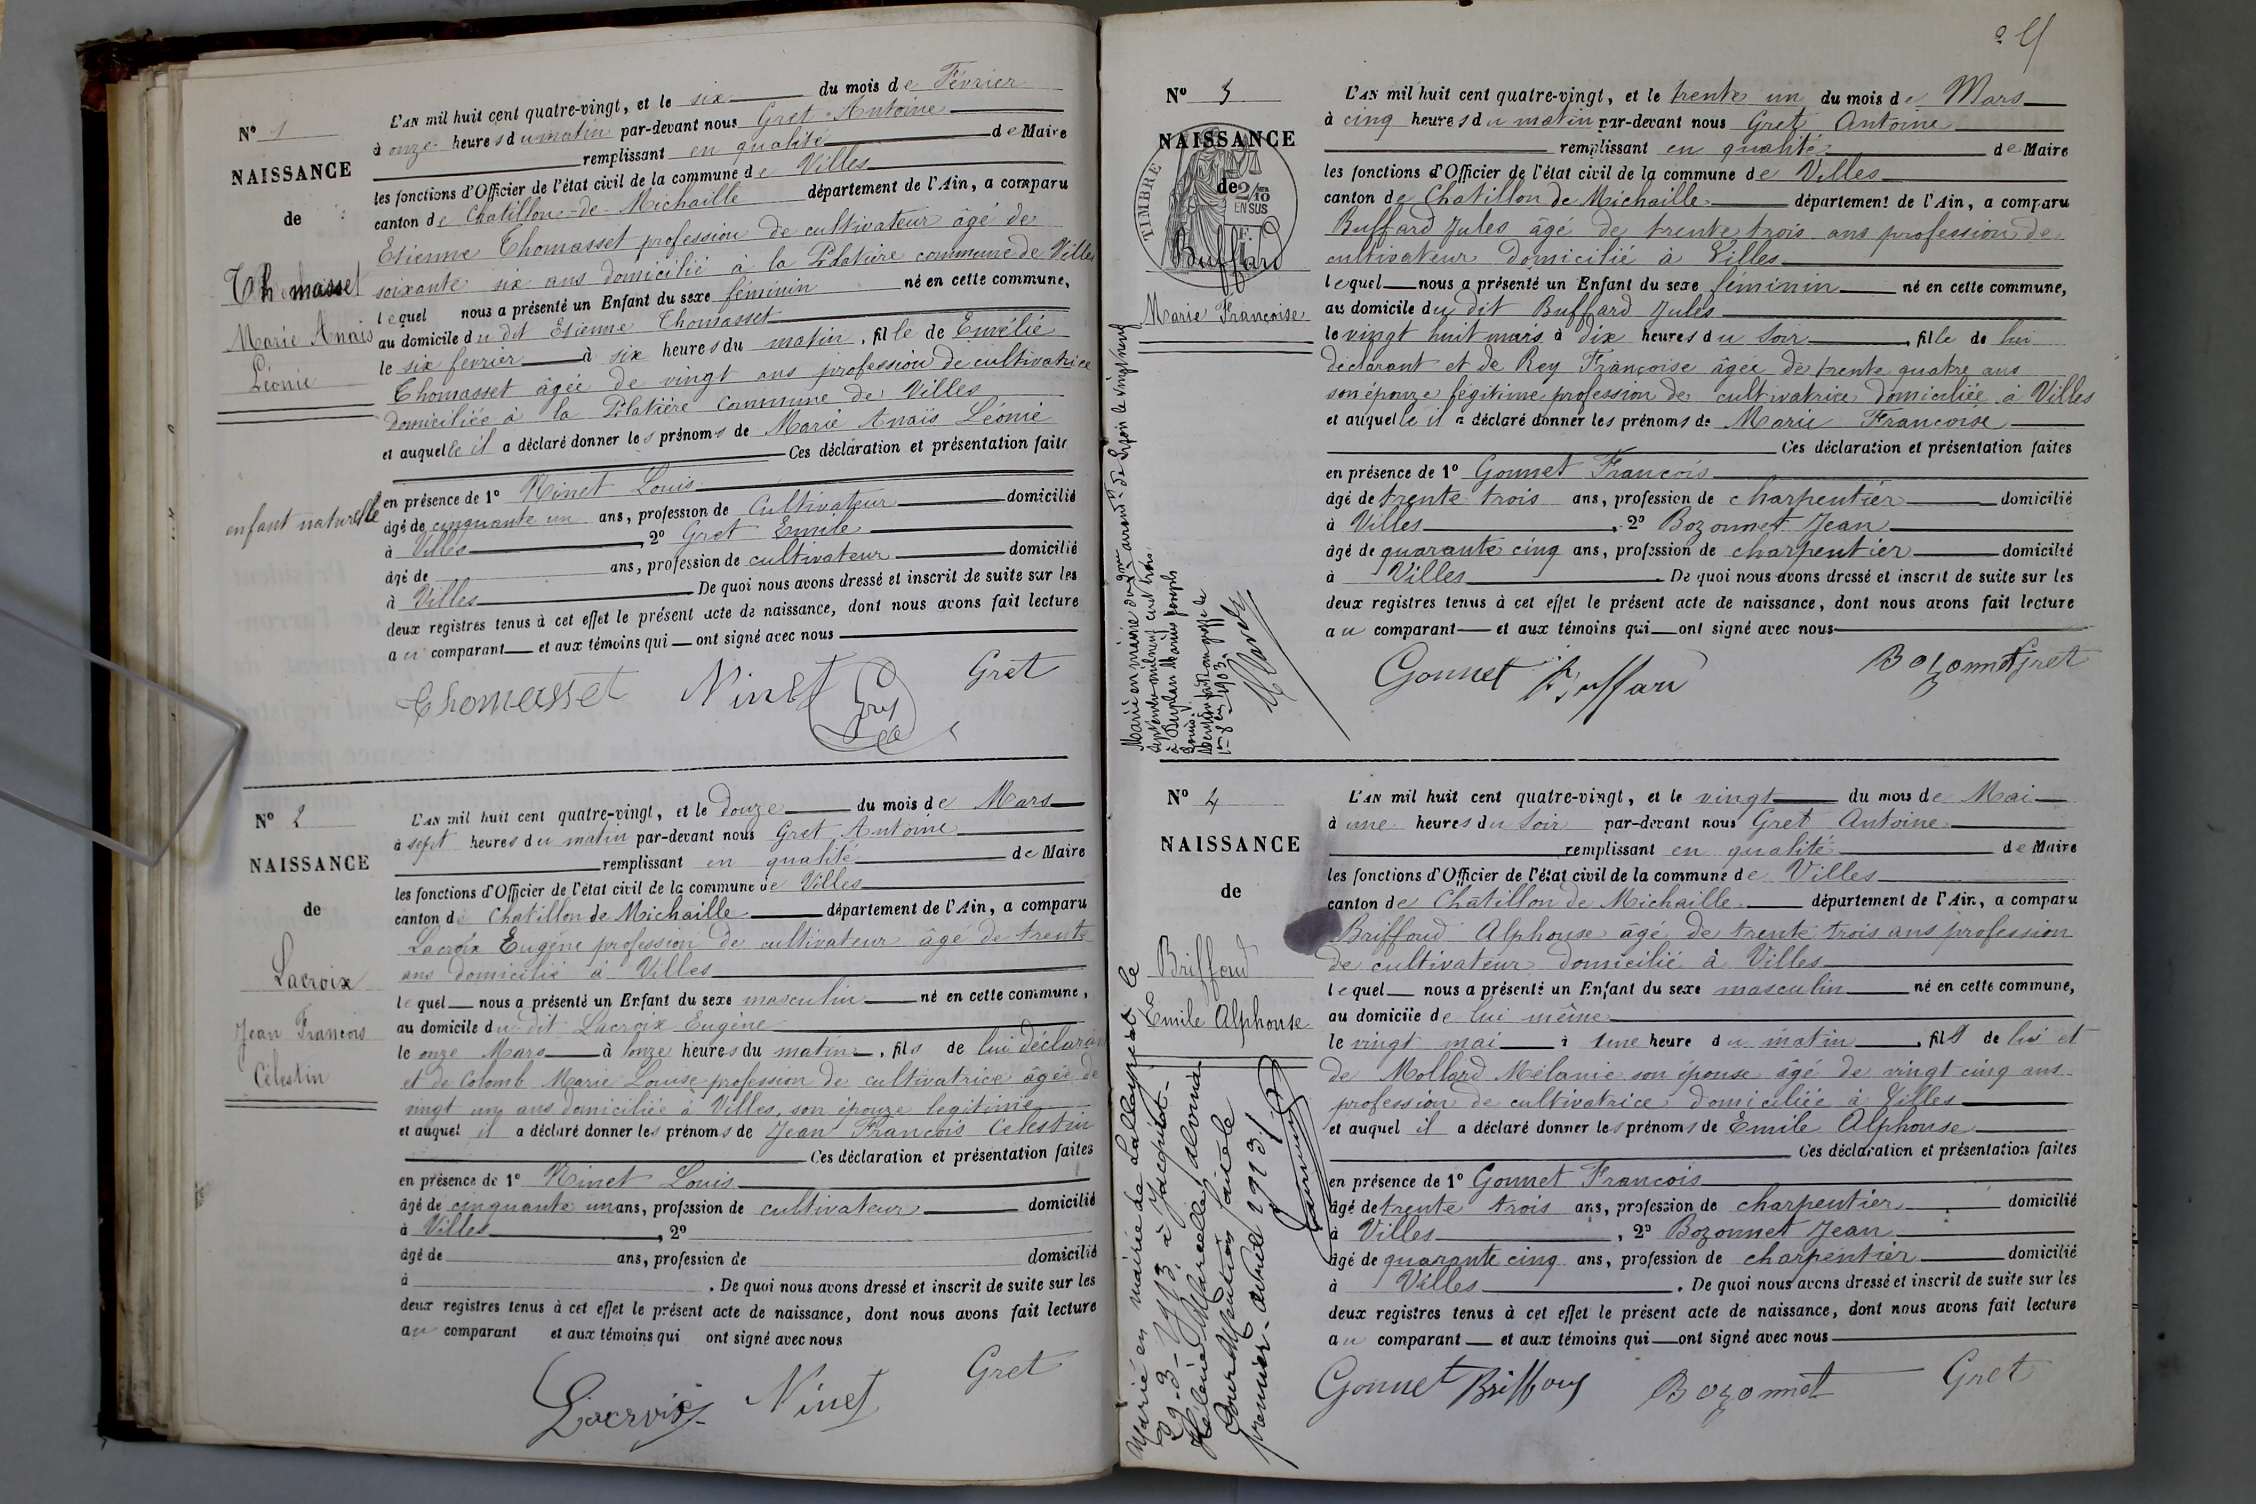 N° 1
NAISSANCE
de
Thomasset
Marie Anaïs
Léonie
enfant naturelle
L'AN mil huit cent quatre-vingt, et le six du mois de Février
à onze heures du matin par-devant nous Gret Antoine
remplissant en qualité de Maire
les fonctions d'Officier de l'état civil de la commune de Villes
canton de Chatillon-de-Michaille département de l'Ain, a comparu
Etienne Thomasset profession de cultivateur âgé de
soixante six ans domicilié à la Pilatière commune de Villes
lequel nous a présenté un Enfant du sexe féminin né en cette commune,
au domicile du dit Etienne Thomasset
le six fevrier à six heures du matin, fille de Emélie
Thomasset âgée de vingt ans profession de cultivatrice
domiciliée à la Pilatière commune de Villes
et auquelle il a déclaré donner les prénoms de Marie Anaïs Léonie
Ces déclaration et présentation faites
en présence de 1° Ninet Louis
âgé de cinquante un ans, profession de Cultivateur domicilié
à Villes 2° Gret Emile
âgé de ans, profession de cultivateur domicilié
à Villes De quoi nous avons dressé et inscrit de suite sur les
deux registres tenus à cet effet le présent acte de naissance, dont nous avons fait lecture
au comparant et aux témoins qui ont signé avec nous
Thomasset Ninet Gret
N° 2
NAISSANCE
de
Lacroix
Jean François
Célestin
L'AN mil huit cent quatre-vingt, et le douze du mois de Mars
à sept heures du matin par-devant nous Gret Antoine
remplissant en qualité de Maire
les fonctions d'Officier de l'état civil de la commune de Villes
canton de Chatillon de Michaille département de l'Ain, a comparu
Lacroix Eugène profession de cultivateur âgé de trente
ans domicilié à Villes
lequel nous a présenté un Enfant du sexe masculin né en cette commune,
au domicile du dit Lacroix Eugène
le onze Mars à onze heures du matin, fils de lui déclarant
et de Colomb Marie Louise profession de cultivatrice âgée de
vingt un ans domiciliée à Villes, son épouze legitime
et auquel il a déclaré donner les prénoms de Jean François Célestin
Ces déclaration et présentation faites
en présence de 1° Ninet Louis
âgé de cinquante un ans, profession de cultivateur domicilié
à Villes, 2°
âgé de ans, profession de domicilié
à . De quoi nous avons dressé et inscrit de suite sur les
deux registres tenus à cet effet le présent acte de naissance, dont nous avons fait lecture
au comparant et aux témoins qui ont signé avec nous
Lacroix Ninet Gret
N° 3
NAISSANCE
de
TIMBRE
2/10
EN SUS
Buffard
Marie Françoise
L'AN mil huit cent quatre-vingt, et le trente un du mois de Mars
à cinq heures du matin par-devant nous Gret Antoine
remplissant en qualité de Maire
les fonctions d'Officier de l'état civil de la commune de Villes
canton de Chatillon de Michaille département de l'Ain, a comparu
Buffard Jules âgé de trente trois ans profession de
cultivateur domicilié à Villes
lequel nous a présenté un Enfant du sexe féminin né en cette commune,
au domicile du dit Buffard Jules
le vingt huit mars à dix heures du soir, fille de lui
déclarant et de Rey Françoise âgée de trente quatre ans
son épouze légitime profession de cultivatrice domiciliée à Villes
et auquelle il a déclaré donner les prénoms de Marie Françoise
Ces déclaration et présentation faites
en présence de 1° Gonnet François
âgé de trente trois ans, profession de charpentier domicilié
à Villes, 2° Bozonnet Jean
âgé de quarante cinq ans, profession de charpentier domicilié
à Villes De quoi nous avons dressé et inscrit de suite sur les
deux registres tenus à cet effet le présent acte de naissance, dont nous avons fait lecture
au comparant et aux témoins qui ont signé avec nous
Gonnet Buffard Bozonnet Gret
Marié en mairie du 2me arrondt de Lyon le vingt neuf
septembre mil neuf cent trois,
à Marius Joseph
Louis.
1903.
N° 4
NAISSANCE
de
Briffoud
Emile Alphonse
L'AN mil huit cent quatre-vingt, et le vingt du mois de Mai
à une heures du soir par-devant nous Gret Antoine
remplissant en qualité de Maire
les fonctions d'Officier de l'état civil de la commune de Villes
canton de Châtillon de Michaille département de l'Ain, a comparu
Briffoud Alphonse âgé de trente trois ans profession
de cultivateur domicilié à Villes
lequel nous a présenté un Enfant du sexe masculin né en cette commune,
au domicile de lui même
le vingt mai à une heure du matin, fils de lui et
de Mollard Mélanie son épouse âgé de vingt cinq ans
profession de cultivatrice domiciliée à Villes
et auquel il a déclaré donner les prénoms de Emile Alphonse
Ces déclaration et présentation faites
en présence de 1° Gonnet François
âgé de trente trois ans, profession de charpentier domicilié
à Villes, 2° Bozonnet Jean
âgé de quarante cinq ans, profession de charpentier domicilié
à Villes. De quoi nous avons dressé et inscrit de suite sur les
deux registres tenus à cet effet le présent acte de naissance, dont nous avons fait lecture
au comparant et aux témoins qui ont signé avec nous
Gonnet Briffoud Bozonnet Gret
Marié en mairie de Lalleyriat le
29-3-1913 à Jacquiot
Hélène Marcelle Alvina
Pour Mention faite le
premier avril 1913